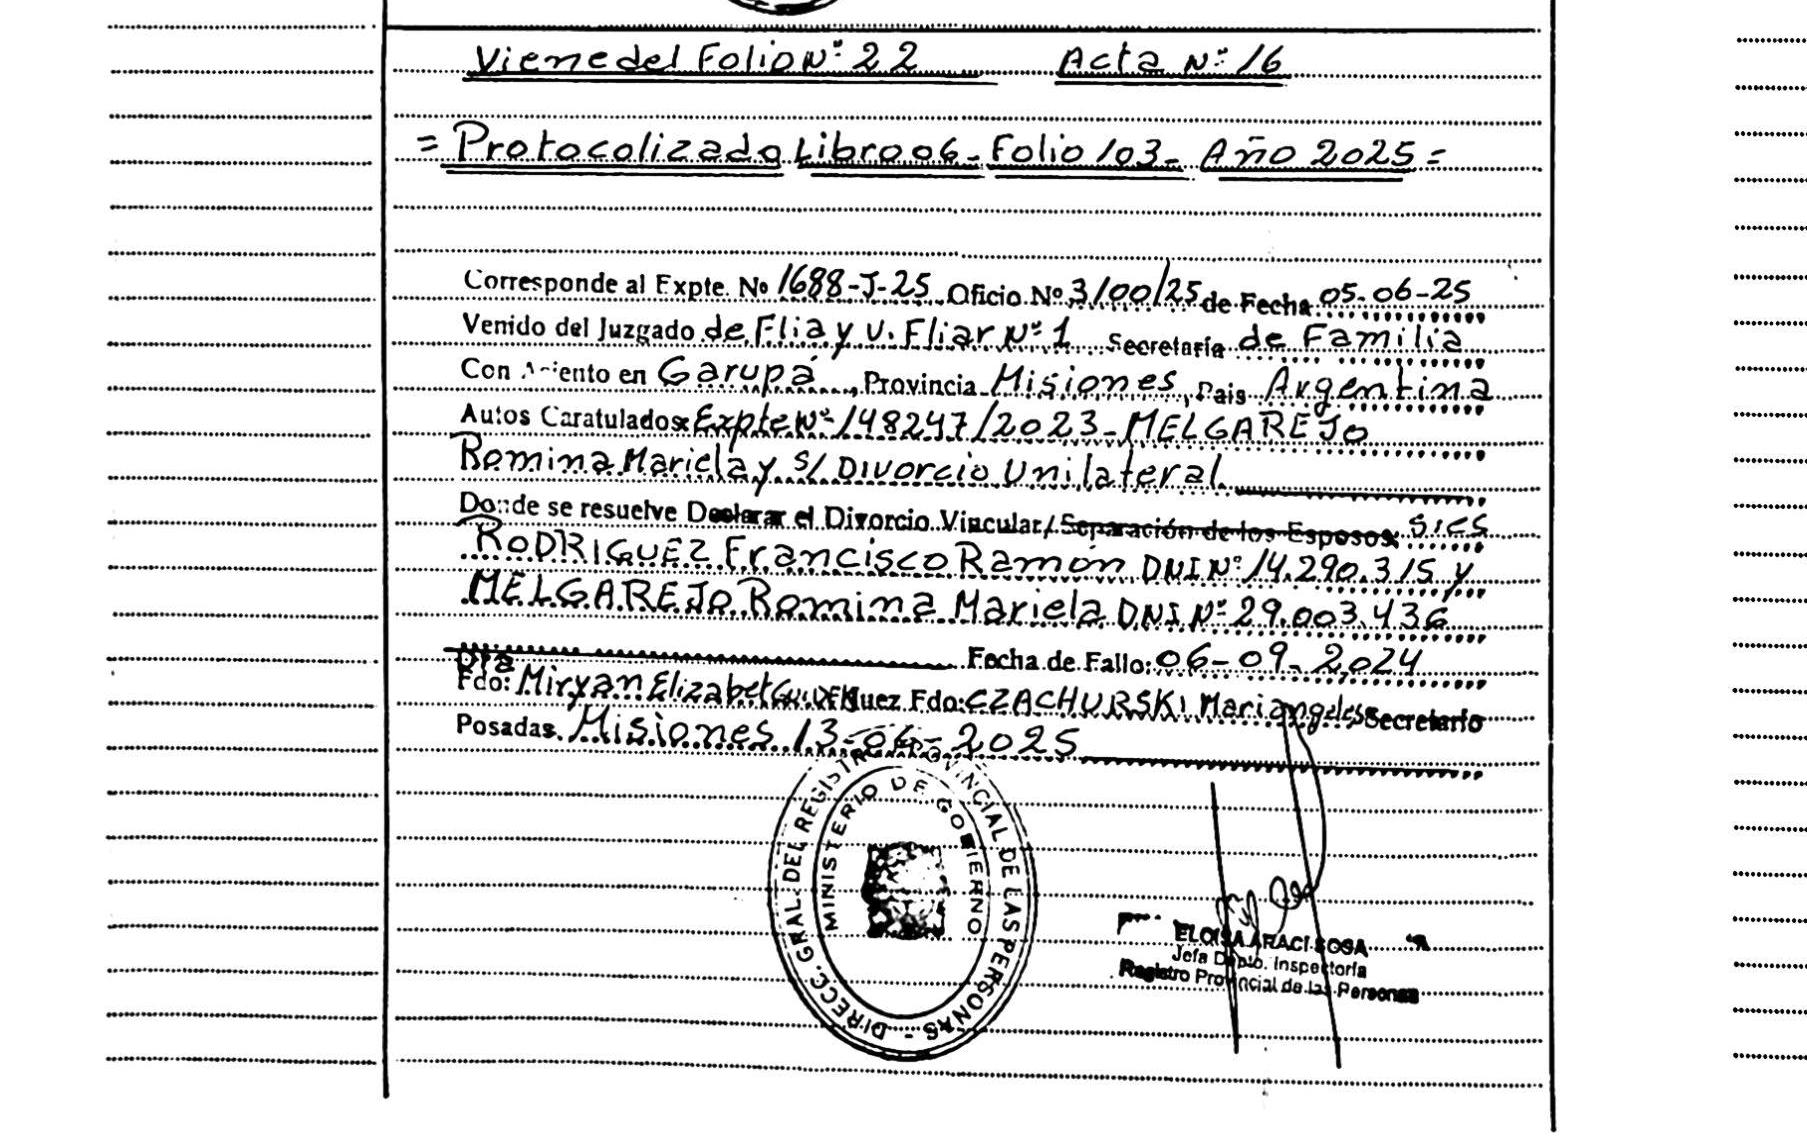 Viene del Folio Nº 22 Acta Nº 16
= Protocolizado Libro 06 - Folio 103 - Año 2025 =
Corresponde al Expte. Nº 1688-J-25 Oficio Nº 3100/25 de Fecha 05-06-25
Venido del Juzgado de Flia y V. Fliar Nº 1 Secretaría de Familia
Con Asiento en Garupá, Provincia Misiones, Pais Argentina
Autos Caratulados: Expte Nº 148247/2023 - MELGAREJO
Romina Mariela y S/ Divorcio Unilateral
Donde se resuelve Declarar el Divorcio Vincular/Separación de los Esposos: Sres
RODRIGUEZ Francisco Ramón DNI Nº 14.290.315 y
MELGAREJO Romina Mariela DNI Nº 29.003.436
Fecha de Fallo: 06-09-2024
Dra
Fdo: Miryan Elizabet Juez Fdo: CZACHURSKI Mariangeles Secretario
Posadas, Misiones 13-06-2025
DIRECC. GRAL. DEL REGISTRO PROVINCIAL DE LAS PERSONAS -
MINISTERIO DE GOBIERNO
ELOISA ARACI SOSA
Jefa Dpto. Inspectoría
Registro Provincial de las Personas